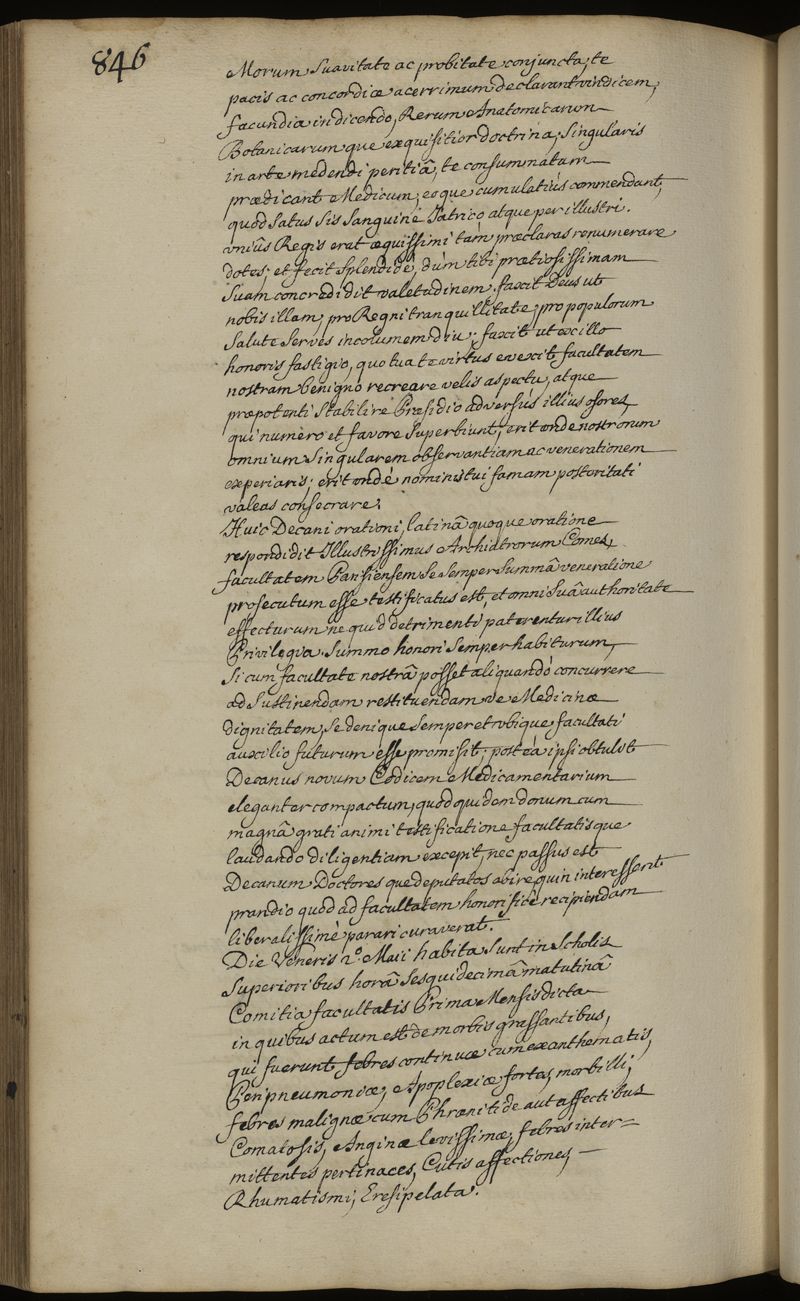 846
Morum Suavitate ac probitate conjuncta, te
pacis ac concordiæ acerrimum declarant vindicem,
facundia in dicendo, Rerum Anatomicarum
Botanicarumque exquisitior doctrina, Singularis
in arte medendi peritiâ, te consummatum
prædicant Medicum; eoque cumulatiùs commendant,
quod Satus Sis Sanguine Iatrico atque perillustri.
aniûs Regis erat æquissimi tàm præclaras renumerare
dotes; et fecit Splendidè, dùm tibi prætiosissimam
Suam concredidit valetudinem. faxit Deus ut
nobis illam, pro Regni tranquillitate, pro populorum
Salute Serves incolumem diu; faxit ut ex illo
honoris fastigio, quo tua te virtus evexit facultatem
nostram benigno recreare velis aspectu, atque
præpotenti Stabilire Præsidio adversùs illius osores,
qui numero et favore Superbiunt; erit onde nostrorum
omnium Singularem observantiam ac venerationem
experiaris; erit ondè nominis tui famam posteritati
valeas consecrare.
Huic Decani orationi, latinâ quoque oratione
respondidit Illustrissimus Archiatrorum Comes,
facultatem Parisiensem Se Semper Summâ veneratione
prosecutum esse testificatus est, et omni Suâ authoritate
effecturum ne quid detrimenti paterentur illius
Privilegia. Summo honori Semper habiturum,
Si cum facultate nostrâ posset aliquandò concurrere
ad Sustinendam restituendamve Medicinæ
dignitatem, Se denique Semper et ubique facultati
auxilio futurum esse promisit; posteà ipsi obtulit
Decanus novum Codicem Medicamentarium
eleganter compactum, quod quidem donum cum
magnâ grati animi testificatione facultatisque
laudando diligentiam excepit, nec passus est
Decanum Doctoresque deputatos abire quin interessent
prandio quod ad facultatem honorificè recipiendam
liberalissimè parari curaverat.
Die Veneris 2.° Maii habita Sunt in Scholis
Superioribus horâ Sesquidecimâ matutinâ
Comitia facultatis Prima Mensis dicta
in quibus actum est de morbis grassantibus,
qui fuerunt febres continuæ cum exanthematis,
Peripneumoniæ, Apoplexiæ fortes, morbilli,
febres malignæ cum Phrænitide aut affectibus
Comatosis, Anginæ levissimæ, febres inter=
mittentes pertinaces, Cutis affectiones,
Rhumatismi, Eresipelata.